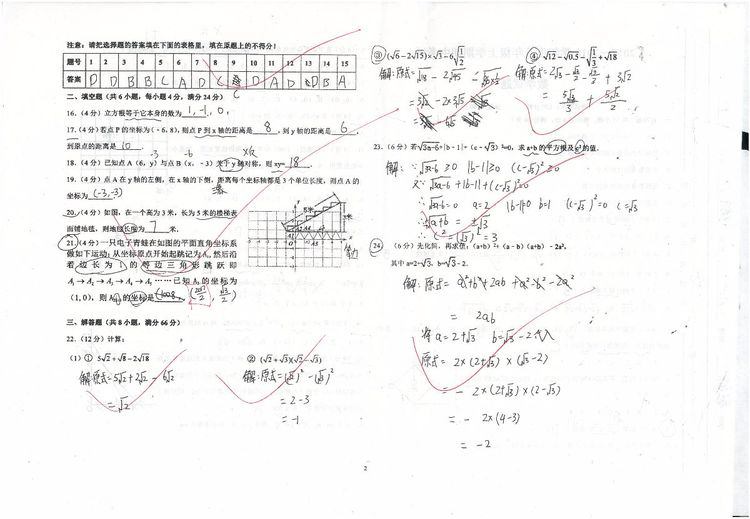 注意：请把选择题的答案填在下面的表格里，填在原题上的不得分！
题号 1 2 3 4 5 6 7 8 9 10 11 12 13 14 15
答案 D D B B C A D C D A D D B A
C
二、填空题（共6小题，每小题4分，满分24分）
16.（4分）立方根等于它本身的数为 1, -1, 0.
17.（4分）若点P的坐标为(-6, 8)，则点P到x轴的距离是 8 ，到y轴的距离是 6 ，
到原点的距离是 10 .
-3 -6
18.（4分）已知点A（6，y）与点B（x，-3）关于y轴对称，则xy= 18 .
19.（4分）点A在y轴的左侧，在x轴的下侧，距离每个坐标轴都是3个单位长度，则点A的
坐标为 (-3,-3)
20.（4分）如图，在一个高为3米，长为5米的楼梯表
面铺地毯，则地毯长度为 7 米.
21.（4分）一只电子青蛙在如图的平面直角坐标系
做如下运动：从坐标原点开始起跳记为A，然后沿
着边长为1的等边三角形跳跃即
A₁→A₂→A₃→A₄→A₅……已知A₃的坐标为
（1,0），则A 的坐标是
三、解答题（共8小题，满分66分）
22.（12分）计算：
（1）① 5√2+√8-2√18
解:原式=5√2+2√2-6√2
=√2
② (√2+√3)(√2-√3)
解:原式=(√2)²-(√3)²
=2-3
=-1
③ (√6-2√15)×√3-6√(1/2)
解:原式=√18-2√45
=3√2-2×3√5
④ √12-√0.5-√(1/3)+√18
解:原式=2√3-√2/2-√3/3+3√2
=5√3/3+5√2/2
23.（6分）若√(3a-6)+|b-1|+(c-√3)²=0，求a+b的平方根及c²的值.
解: ∵√(3a-6)≥0 |b-1|≥0 (c-√3)²≥0
又∵√(3a-6)+|b-1|+(c-√3)²=0
∴√(3a-6)=0 a=2 |b-1|=0 b=1 (c-√3)²=0 c=√3
∴±√(a+b)=±√3
∴c²=(√3)²=3
24.（6分）先化简，再求值：(a+b)²+(a-b)(a+b)-2a²，
其中a=2+√3，b=√3-2.
解:原式=a²+b²+2ab+a²-b²-2a²
=2ab
将a=2+√3 b=√3-2代入
原式=2×(2+√3)×(√3-2)
=-2×(2+√3)×(2-√3)
=-2×(4-3)
=-2
2